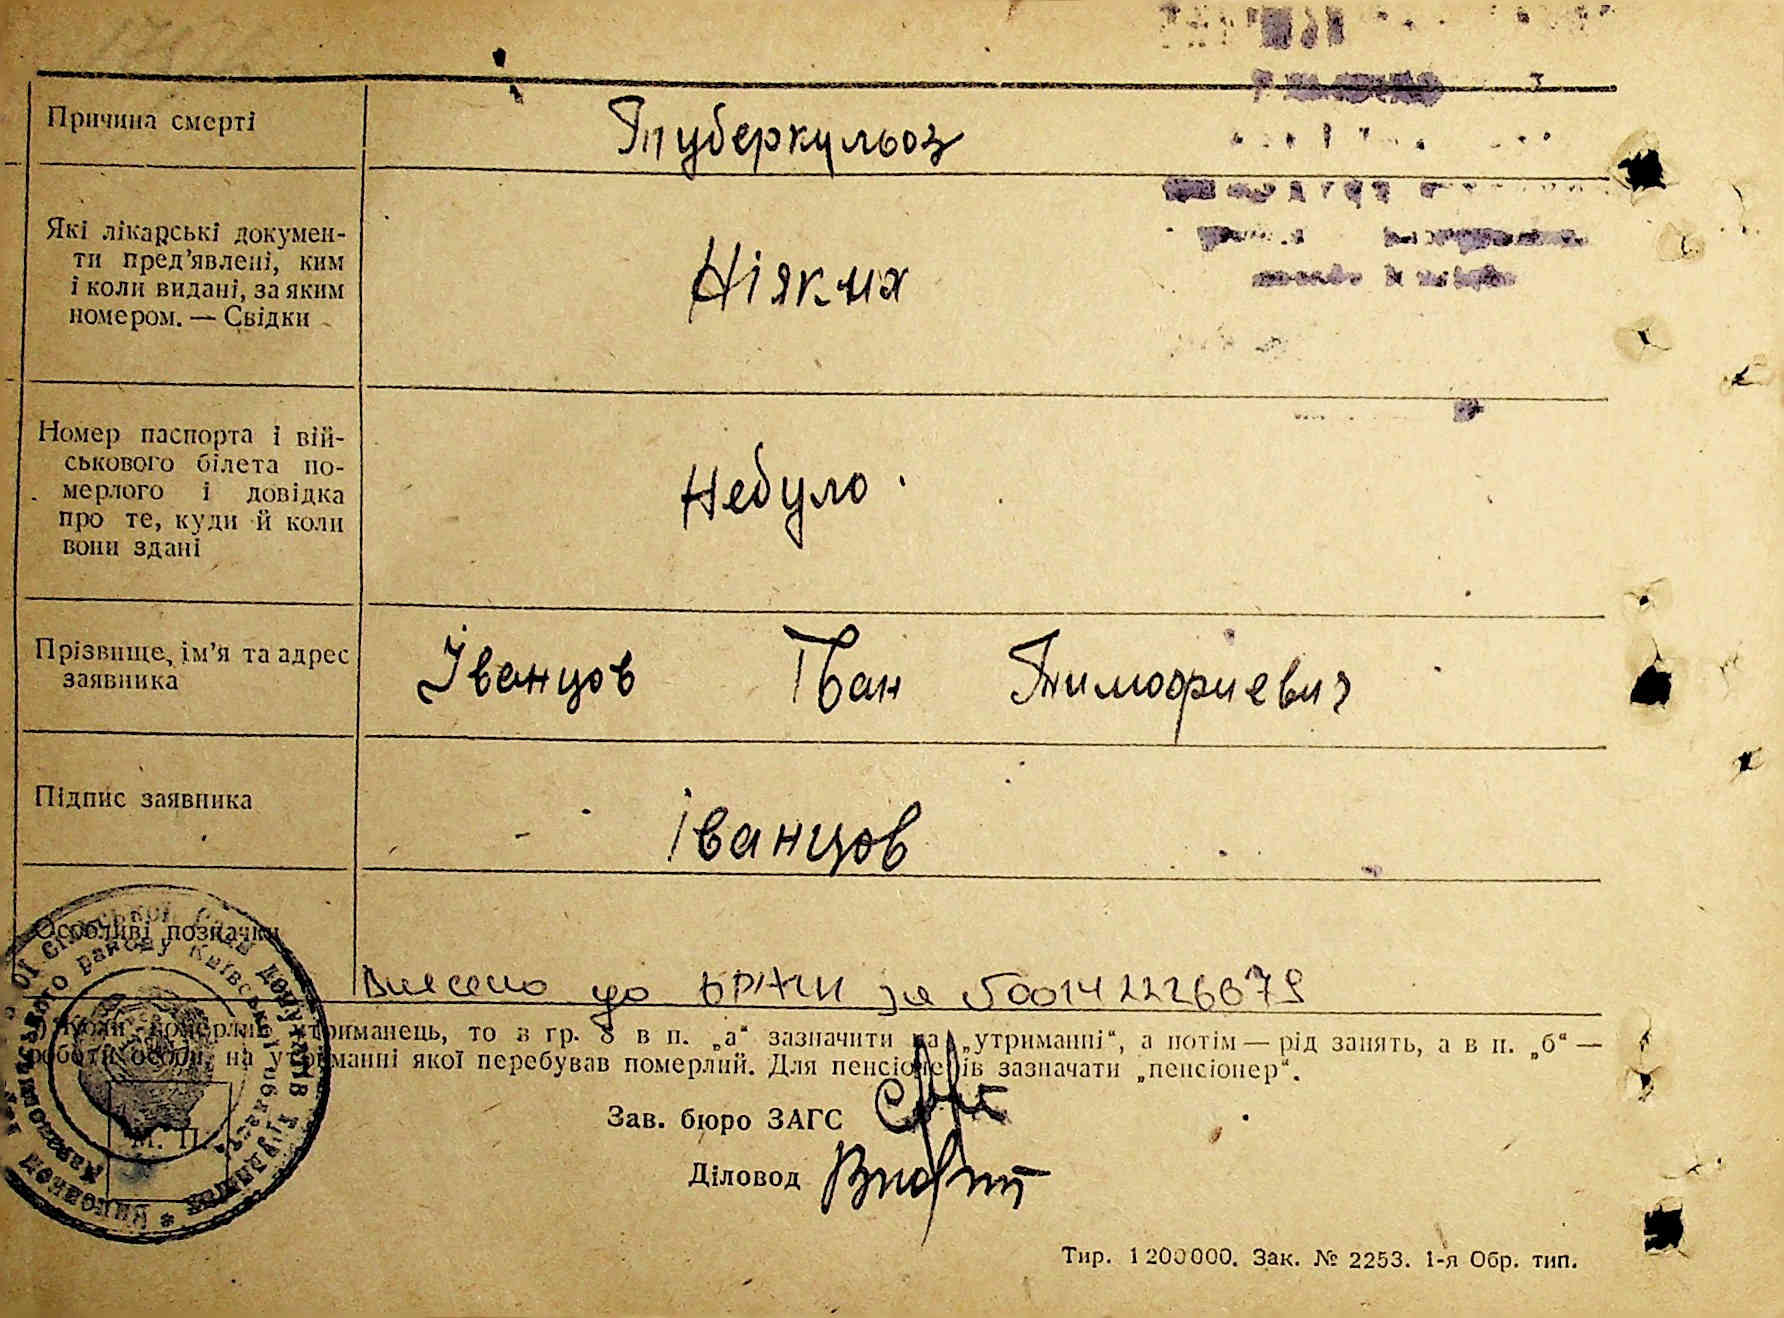 Причина смерті
Туберкульоз
Які лікарські докумен-
ти пред'явлені, ким
і коли видані, за яким
номером. — Свідки
Ніяких
Номер паспорта і вій-
ськового білета по-
мерлого і довідка
про те, куди й коли
вони здані
Небуло
Прізвище, ім'я та адрес
заявника
Іванцов Іван Тимофиевич
Підпис заявника
Іванцов
Особливі позначки
Внесено до ДРАЦС за 00142226679
померлий утриманець, то в гр. 8 в п. „а“ зазначити на „утриманні“, а потім — рід занять, а в п. „б“ —
роботи особи, на утриманні якої перебував померлий. Для пенсіонерів зазначати „пенсіонер“.
Зав. бюро ЗАГС
Діловод
М. П.
Тир. 1 200 000. Зак. № 2253. 1-я Обр. тип.